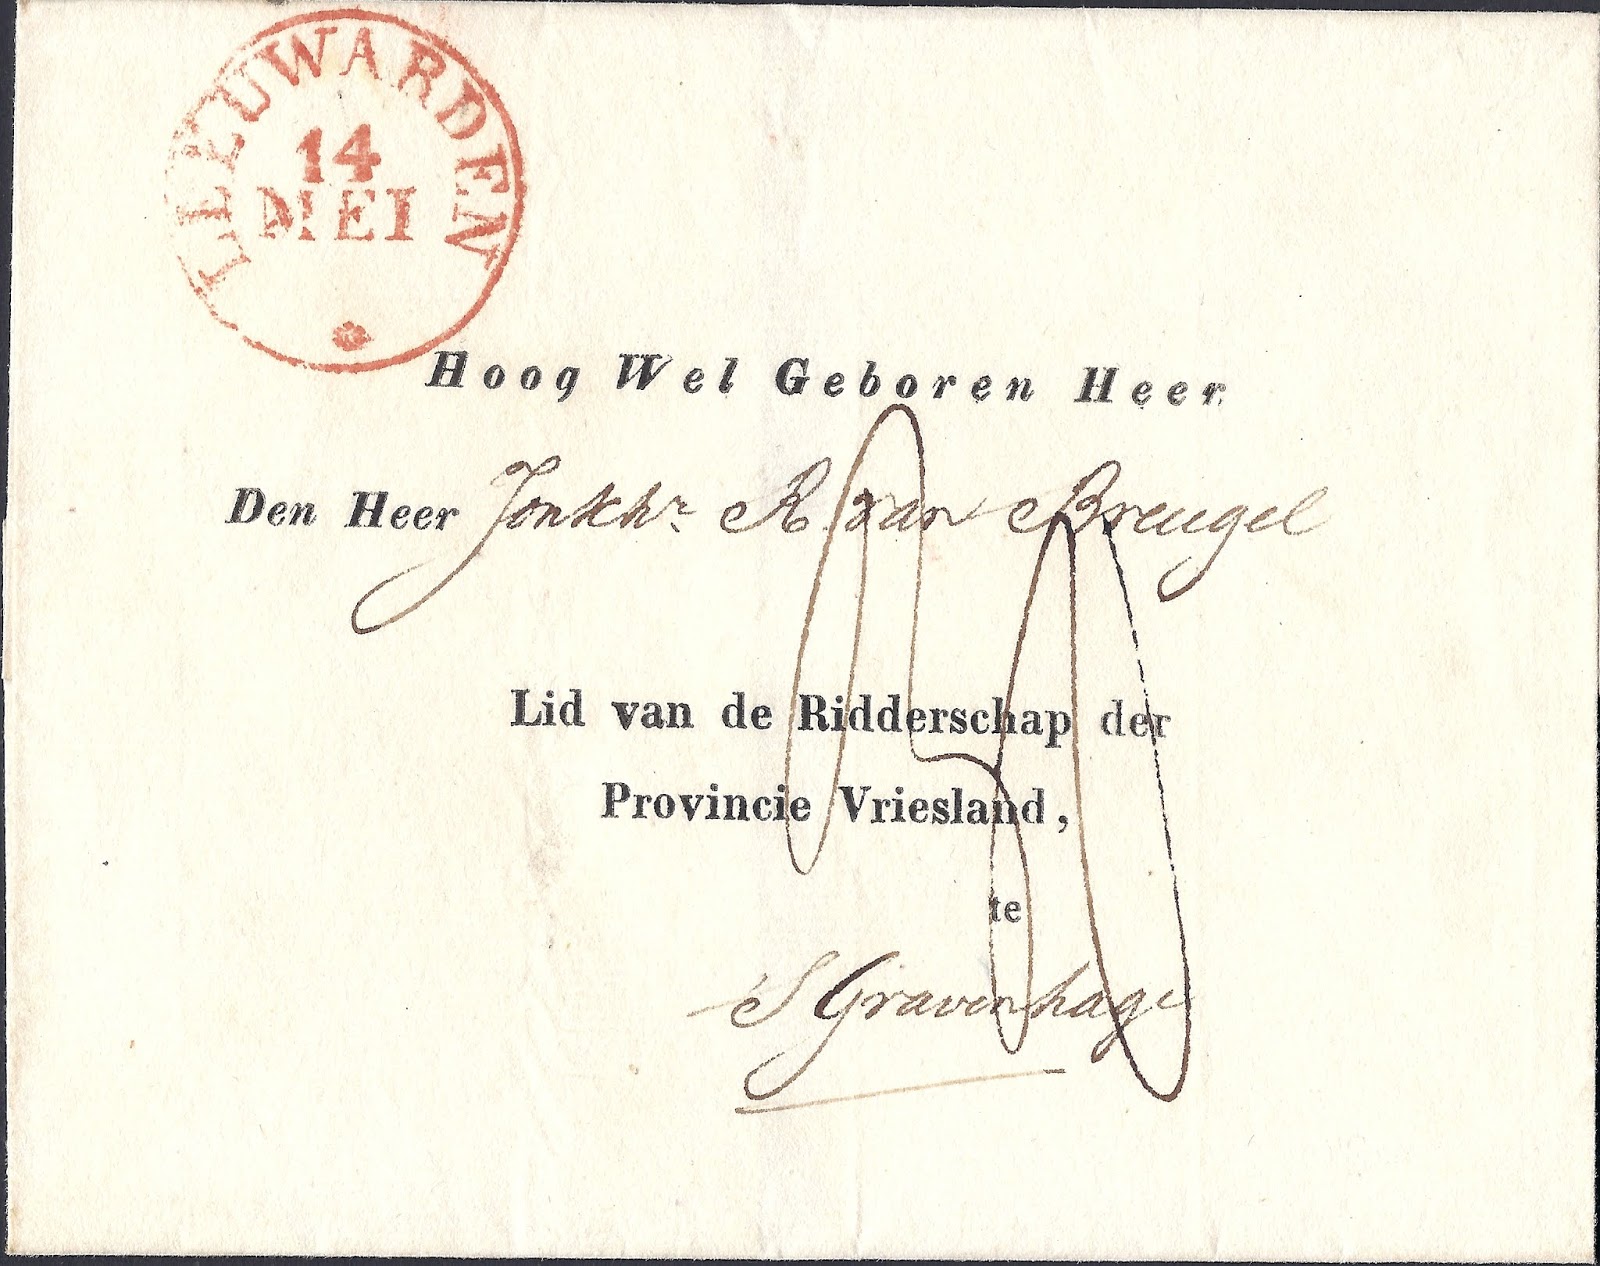 LEEUWARDEN
14
MEI
Hoog Wel Geboren Heer
Den Heer Jonkhr R. van Breugel
Lid van de Ridderschap der
Provincie Vriesland,
te
'S Gravenhage